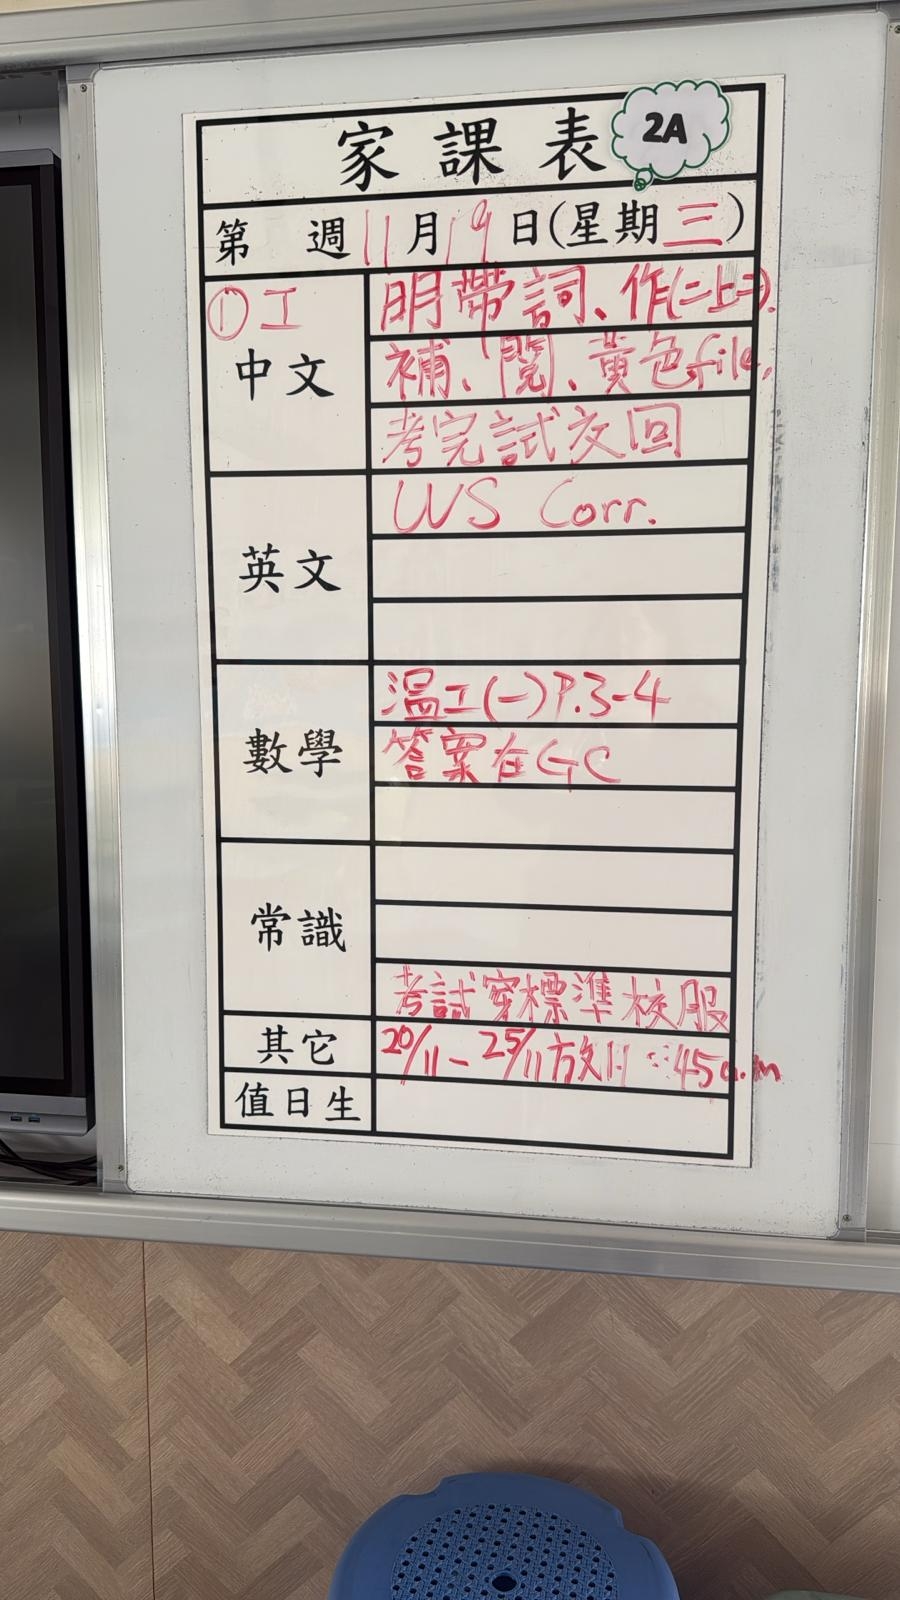 家課表
2A
第 週 11月19日(星期三)
①工
中文
明帶詞、作(二上二).
補、閱、黃色file,
考完試交回
英文
WS Corr.
數學
溫工(一)P.3-4
答案在GC
常識
考試穿標準校服
其它
20/11 - 25/11 放 :45a.m
值日生